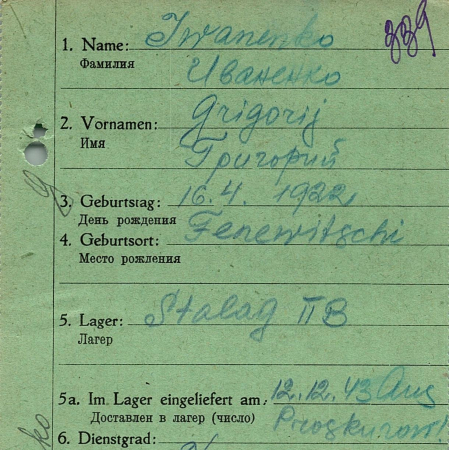 339
1. Name: Iwanenko
Фамилия Иваненко
2. Vornamen: Grigorij
Имя Григорий
3. Geburtstag: 16.4.1922
День рождения
4. Geburtsort: Fenewitschi
Место рождения
5. Lager: Stalag II B
Лагер
5a. Im Lager eingeliefert am: 12.12.43 Aus
Доставлен в лагер (число) Proskurow!
6. Dienstgrad: